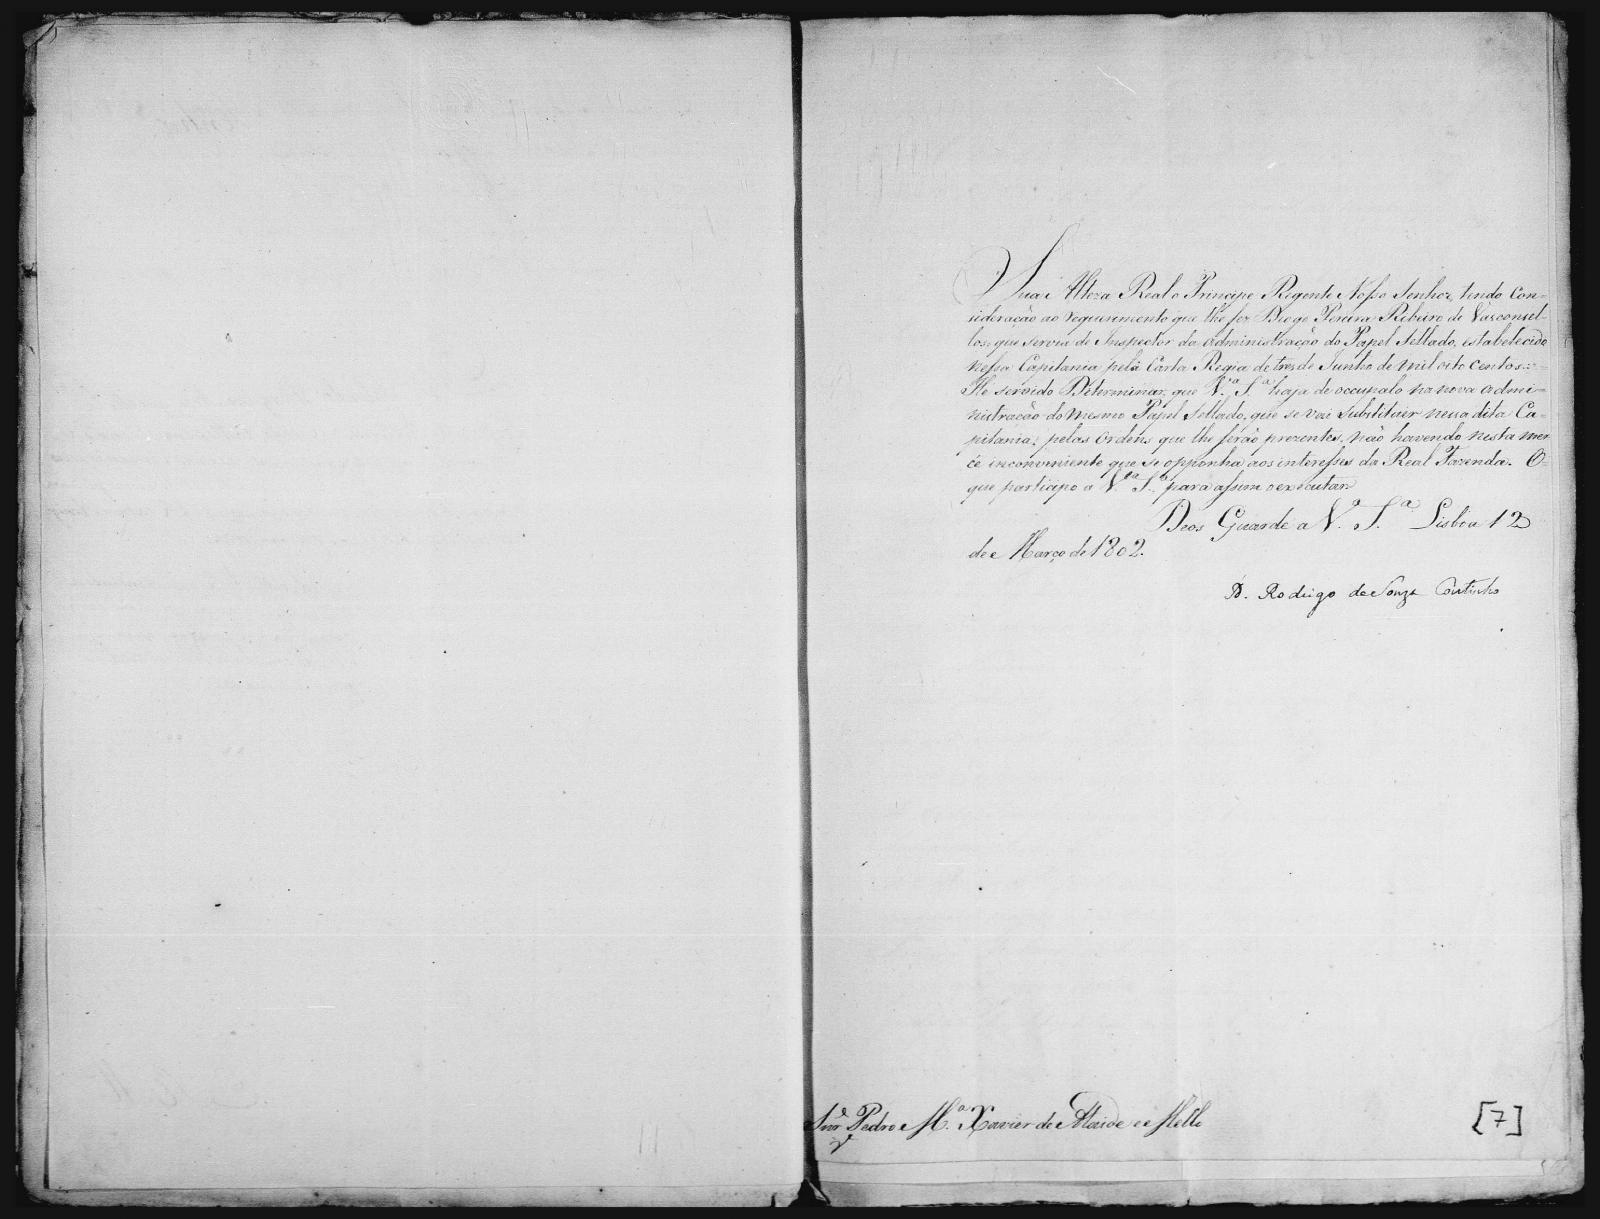 Sua Alteza Real o Principe Regente Nosso Senhor, tendo Con=
sideração ao requerimento que lhe fez Diogo Pereira Ribeiro de Vasconsel-
los, que servia de Inspector da administração do Papel Sellado, estabelecido
nessa Capitania pela Carta Regia de tres de Junho de mil oito centos:=
He servido Determinar, que V.ª S.ª haja de occupalo na nova admi=
nistração do mesmo Papel Sellado, que se vai substituir nessa dita Ca=
pitania, pelas Ordens que lhe serão prezentes, não havendo nesta mer
cê inconveniente que se opponha aos interesses da Real Fazenda. O=
que participo a V.ª S.ª para assim o executar.
Deos Guarde a V.ª S.ª Lisboa 12
de Março de 1802.
D. Rodrigo de Souza Coutinho
Snr. Pedro M.ª Xavier de Ataide e Mello
[7]